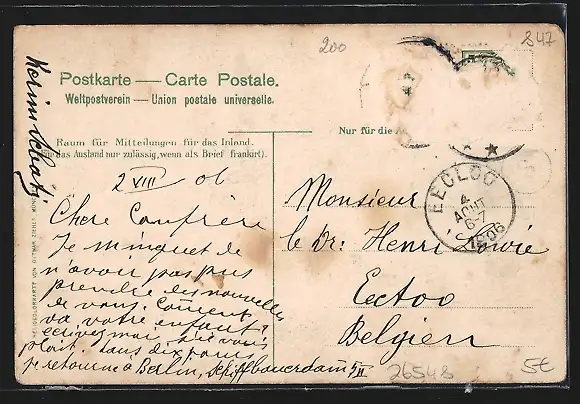 200
847
Postkarte — Carte Postale.
Weltpostverein — Union postale universelle.
Nur für die
Raum für Mitteilungen für das Inland.
(für das Ausland nur zulässig, wenn als Brief frankirt).
2 VIII 06
Chere Confrère
Je m'inquiet de
n'avoir pas pus
prendre des nouvelles
de vous. Coment
va votre enfant?
ecrivez moi, s'il vous
plait, dans dix jours
je retourne à Berlin, Schiffbauerdamm
Monsieur
le Dr: Henri
Eecloo
Belgien
EECLOO
4
AOUT
6-7
1906
26548
5€